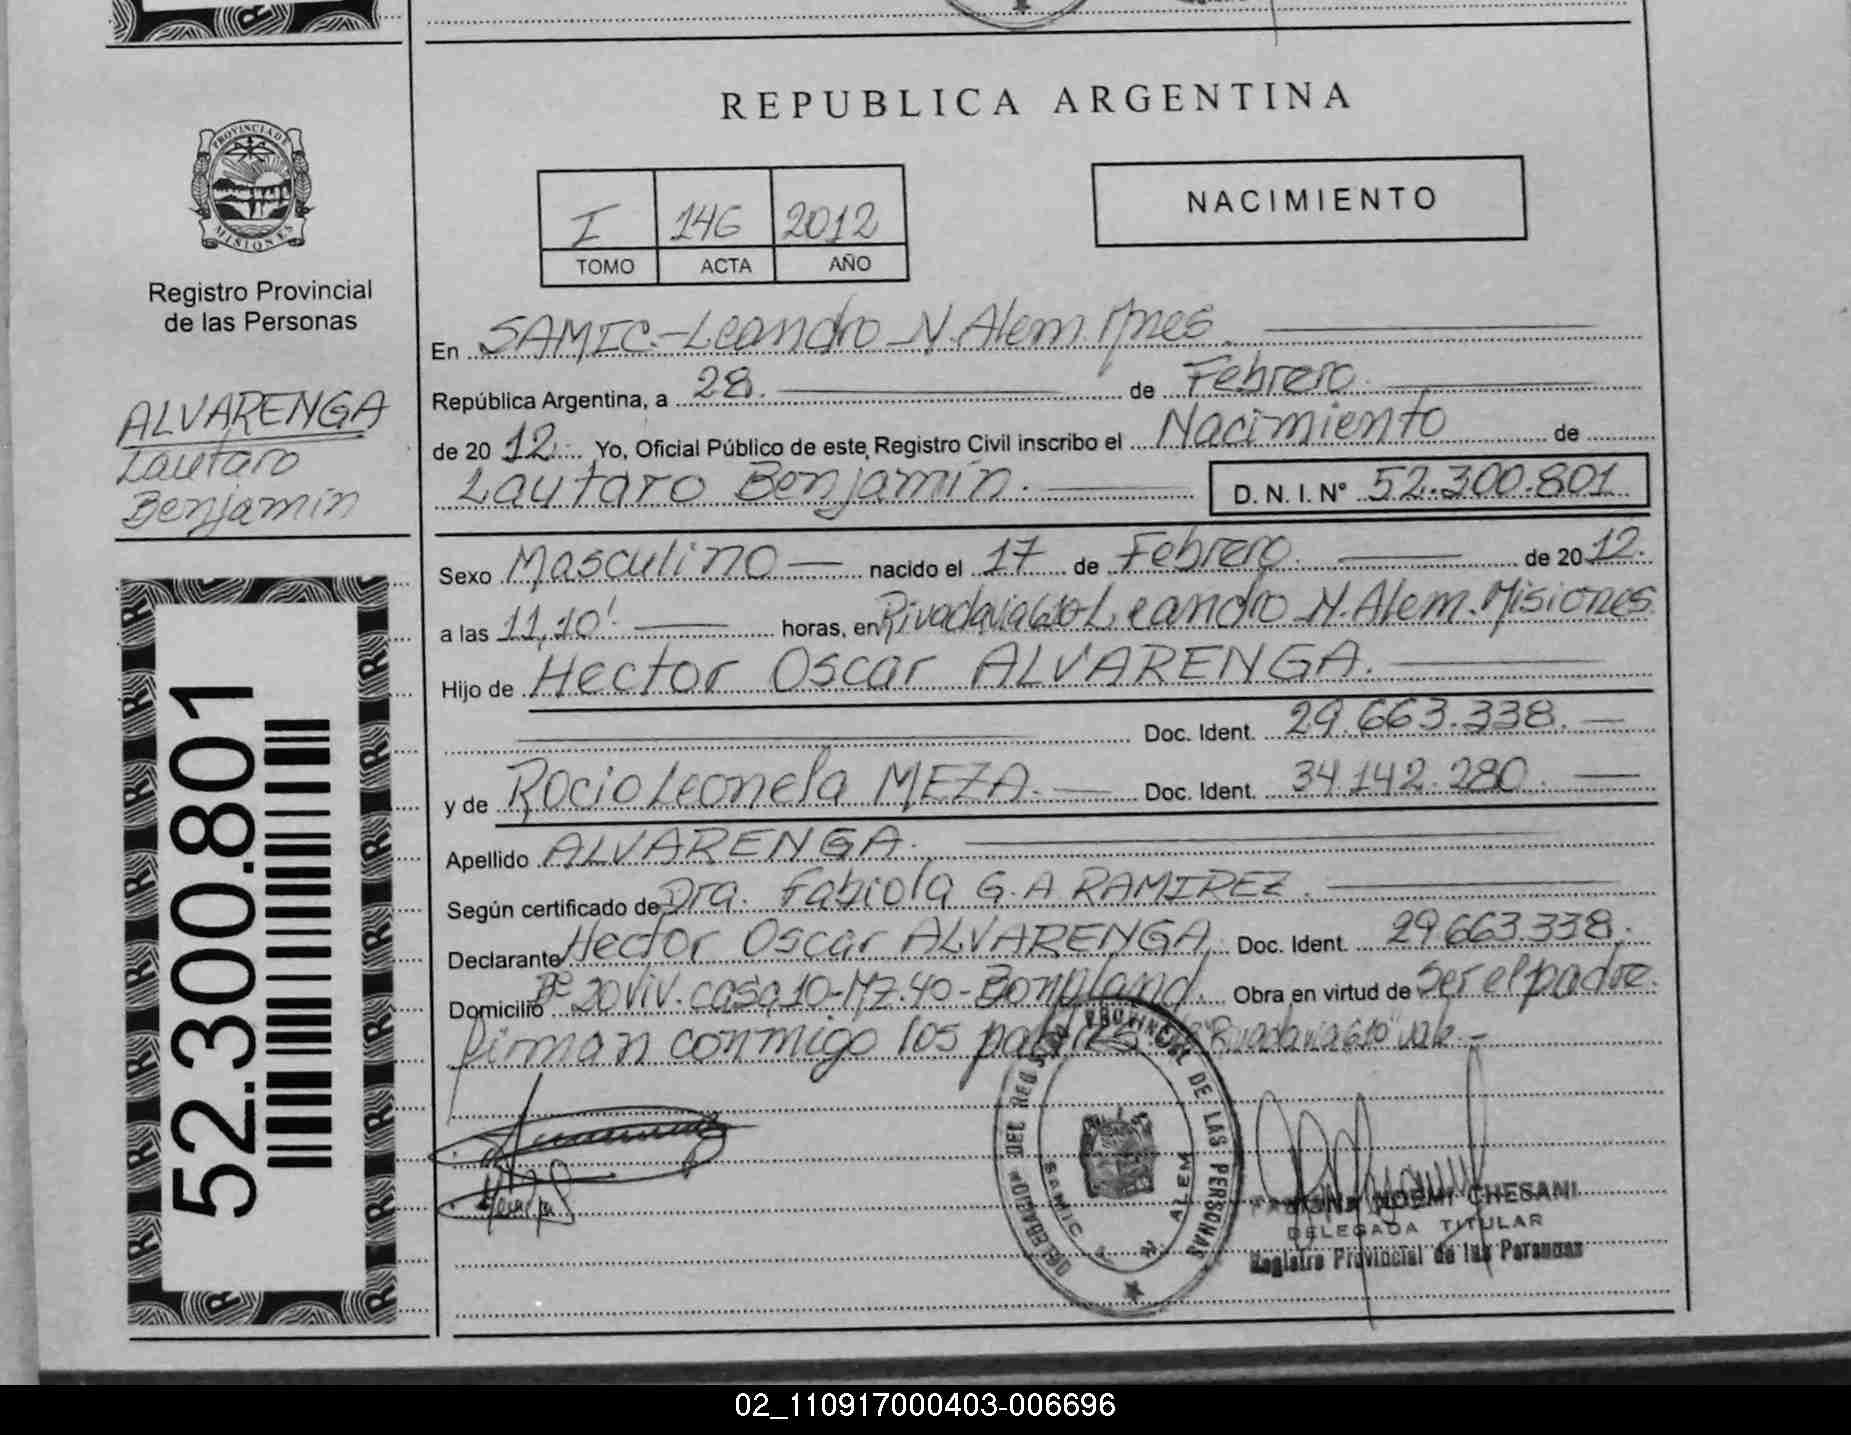 PROVINCIA DE
MISIONES
Registro Provincial
de las Personas
ALVARENGA
Lautaro
Benjamín
52.300.801
REPUBLICA ARGENTINA
I 146 2012
TOMO ACTA AÑO
NACIMIENTO
En SAMIC.-Leandro N. Alem. Mnes
República Argentina, a 28. de Febrero.
de 20 12. Yo, Oficial Público de este Registro Civil inscribo el Nacimiento de
Lautaro Benjamín. D. N. I. Nº 52.300.801
Sexo Masculino nacido el 17 de Febrero. de 20 12.
a las 11,10' horas, en Rivadavia 610-Leandro N. Alem. Misiones
Hijo de Hector Oscar ALVARENGA.
Doc. Ident. 29.663.338.
y de Rocio Leonela MEZA. Doc. Ident. 34.142.280.
Apellido ALVARENGA.
Según certificado de Dra. Fabiola G. A. RAMIREZ.
Declarante Hector Oscar ALVARENGA. Doc. Ident. 29.663.338.
Domicilio Bº 20 Viv. casa 10-Mz.40-Bonpland. Obra en virtud de ser el padre.
firman conmigo los padres "Rivadavia 610" vale.-
DELEGACION DEL REGISTRO PROVINCIAL DE LAS PERSONAS
SAMIC L. N. ALEM
NOEMI CHESANI
DELEGADA TITULAR
Registro Provincial de las Personas
02_110917000403-006696